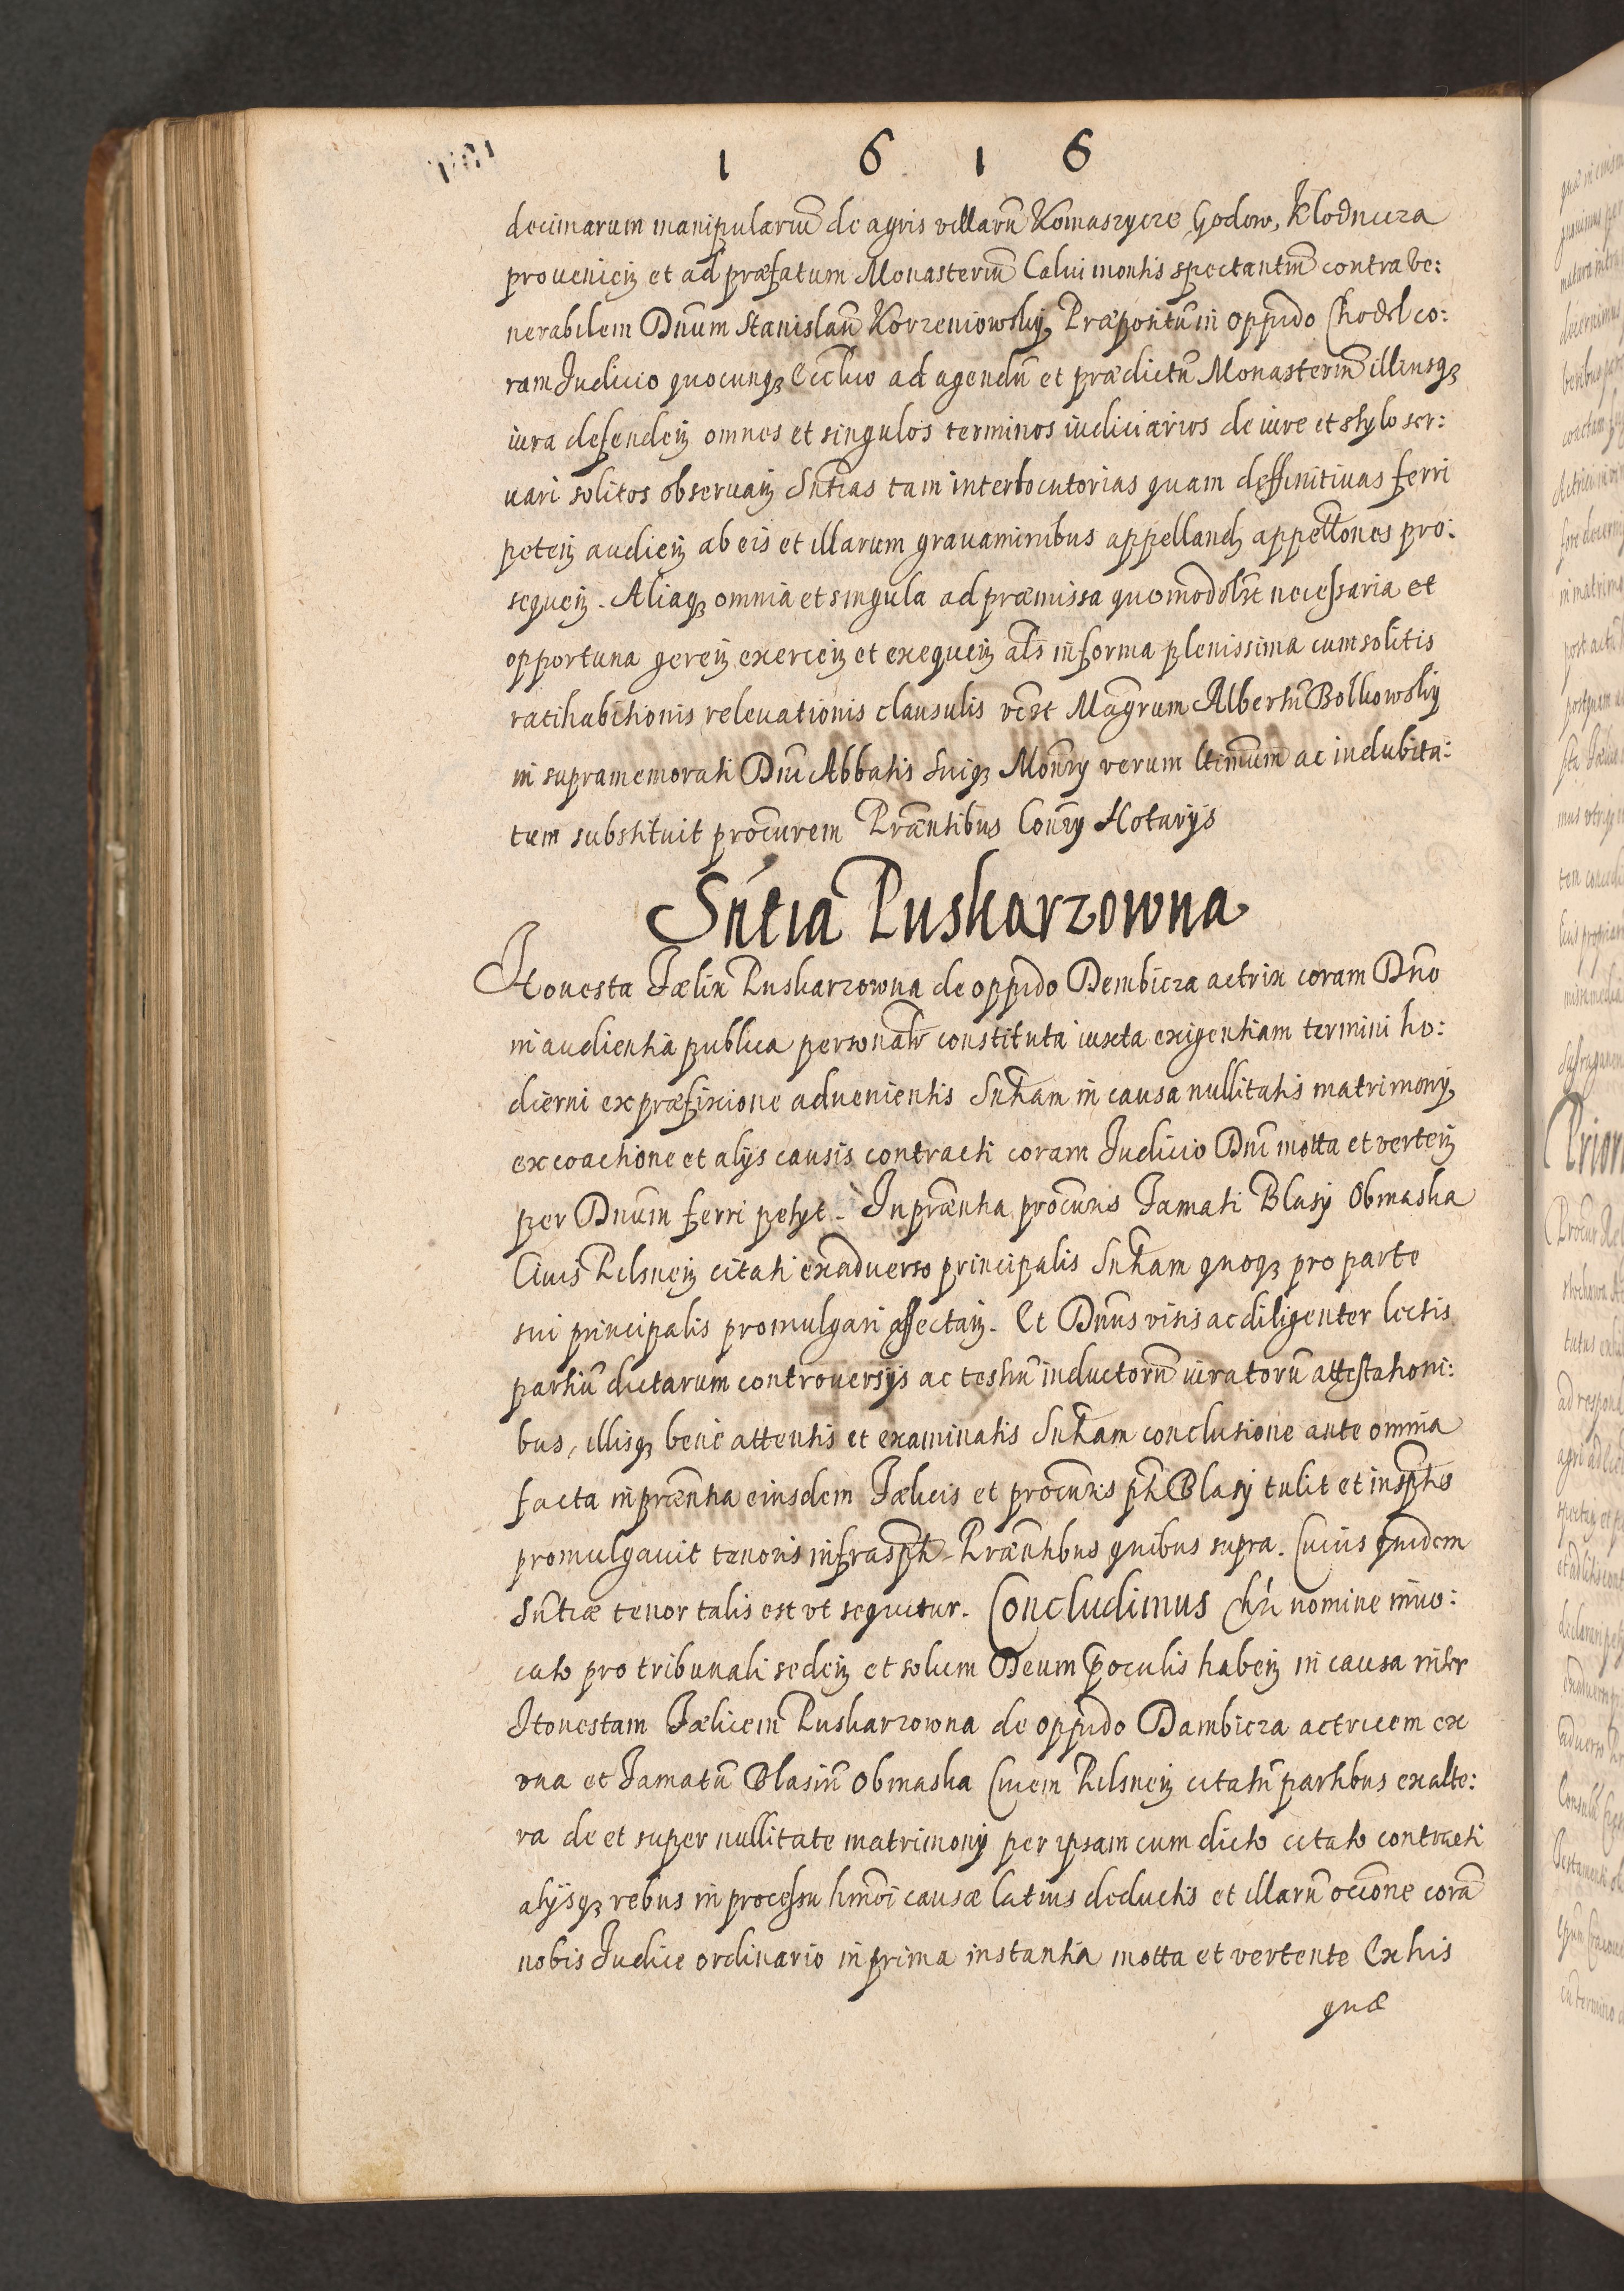 1 6 1 6
decimarum manipulariũ de agris villarũ Komaszycze, Godow, Klodnicza
provenieñ et ad præfatum Monasteriũ Calui montis spectantiũ contra Ve:
nerabilem Dnũm Stanislaũ Korzeniowsky, Præpositũ in oppido Chodel co:
ram Iudicio quocunq₃ Ecclico ad agendũ et prædictũ Monasteriũ illiusq₃
iura defendeñ omnes et singulos terminos iudiciarios de iure et stylo ser:
uari solitos obseruañ Sntias tam interlocutorias quam deffinitiuas ferri
peteñ audieñ ab eis et illarum grauaminibus appellanđ appellones pro:
sequeñ. Aliaq₃ omnia et singula ad præmissa quomodolźt necessaria et
opportuna gereñ exerceñ et exequeñ als in forma plenissima cum solitis
ratihabitionis releuationis clausulis vczt Magrum Albertũ Bolkowsky
in supramemorati Dni Abbatis Suiq₃ Monrÿ verum ltimum ac indubita:
tum substituit procurem Præntibus Conrÿ Notarijs
Sntia Puskarzowna
Honesta Fælix Puskarzowna de oppido Dembicza actrix coram Dno
in audientia publica personalr constituta iuxta exigentiam termini ho:
dierni ex præfixione aduenientis Sntiam in causa nullitatis matrimonij,
ex coactione et alijs causis contracti coram Iudicio Dni motta et verteñ
per Dnum ferri petyt. In præntia procuris Famati Blasij Obmaska
Ciuis Pilsneñ citati ex aduerso principalis Sntiam quoq₃ pro parte
sui principalis promulgari affectañ. Et Dnus visis ac diligenter lectis
partiũ dictarum controuersijs ac testiũ inductorũ iuratorũ attestationi:
bus, illisq₃ bene attentis et examinatis Sntiam conclusione ante omnia
facta in præntia eiusdem Fælicis et procuris pti Blasij tulit et in sptis
promulgauit tenoris infraspti. Præntibus quibus supra. Cuius quidem
Sntiæ tenor talis est vt sequitur. Concludimus Chri nomine inuo:
cato pro tribunali sedeñ et solum Deum p oculis habeñ in causa inter
Honestam Fælicem Puskarzowna de oppido Dambicza actricem ex
vna et Famatũ Blasiũ Obmaska Ciuem Pilsneñ citatũ partibus ex alte:
ra de et super nullitate matrimonij per ipsam cum dicto citato contracti
alijsq₃ rebus in processu hmoi causæ latius deductis et illarũ occione corã
nobis Iudice ordinario in prima instantia motta et vertente Ex his
quæ